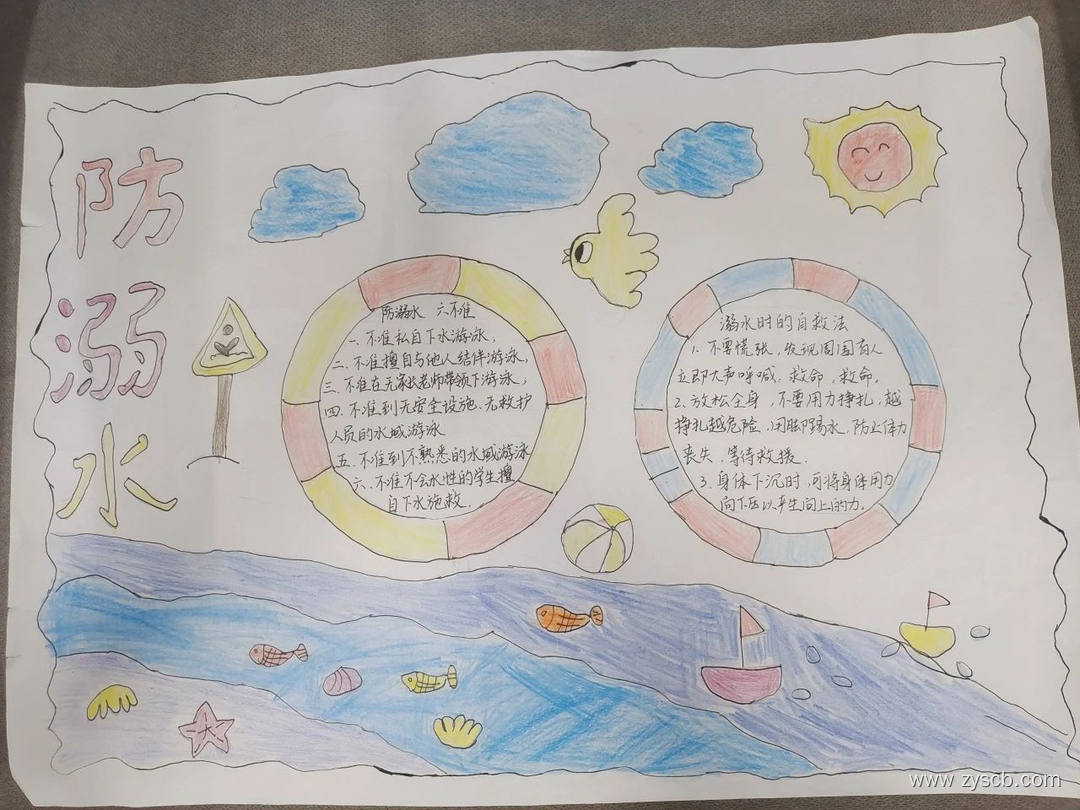 防溺水
防溺水 六不准
一、不准私自下水游泳；
二、不准擅自与他人结伴游泳，
三、不准在无家长老师带领下游泳；
四、不准到无安全设施、无救护
人员的水域游泳
五、不准到不熟悉的水域游泳
六、不准不会水性的学生擅
自下水施救．
溺水时的自救法
1、不要慌张，发现周围有人
立即大声呼喊：救命，救命。
2、放松全身，不要用力挣扎，越
挣扎越危险，闭眼
水，防止体力
丧失，等待救援．
3、身体下沉时，可将身体用力
向下压以产生向上的力。
www.zyscb.com